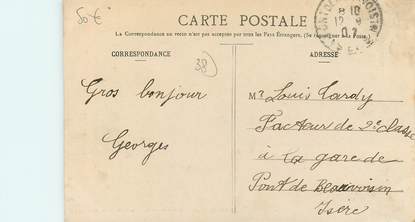 50€
CARTE POSTALE
La Correspondance au recto n'est pas acceptée par tous les Pays Étrangers. (Se renseigner à la Poste.)
CORRESPONDANCE
ADRESSE
38
Gros bonjour
Georges
Mr Louis Cardy
Facteur de 2e classe
à la gare de
Pont de Beauvoisin
Isère